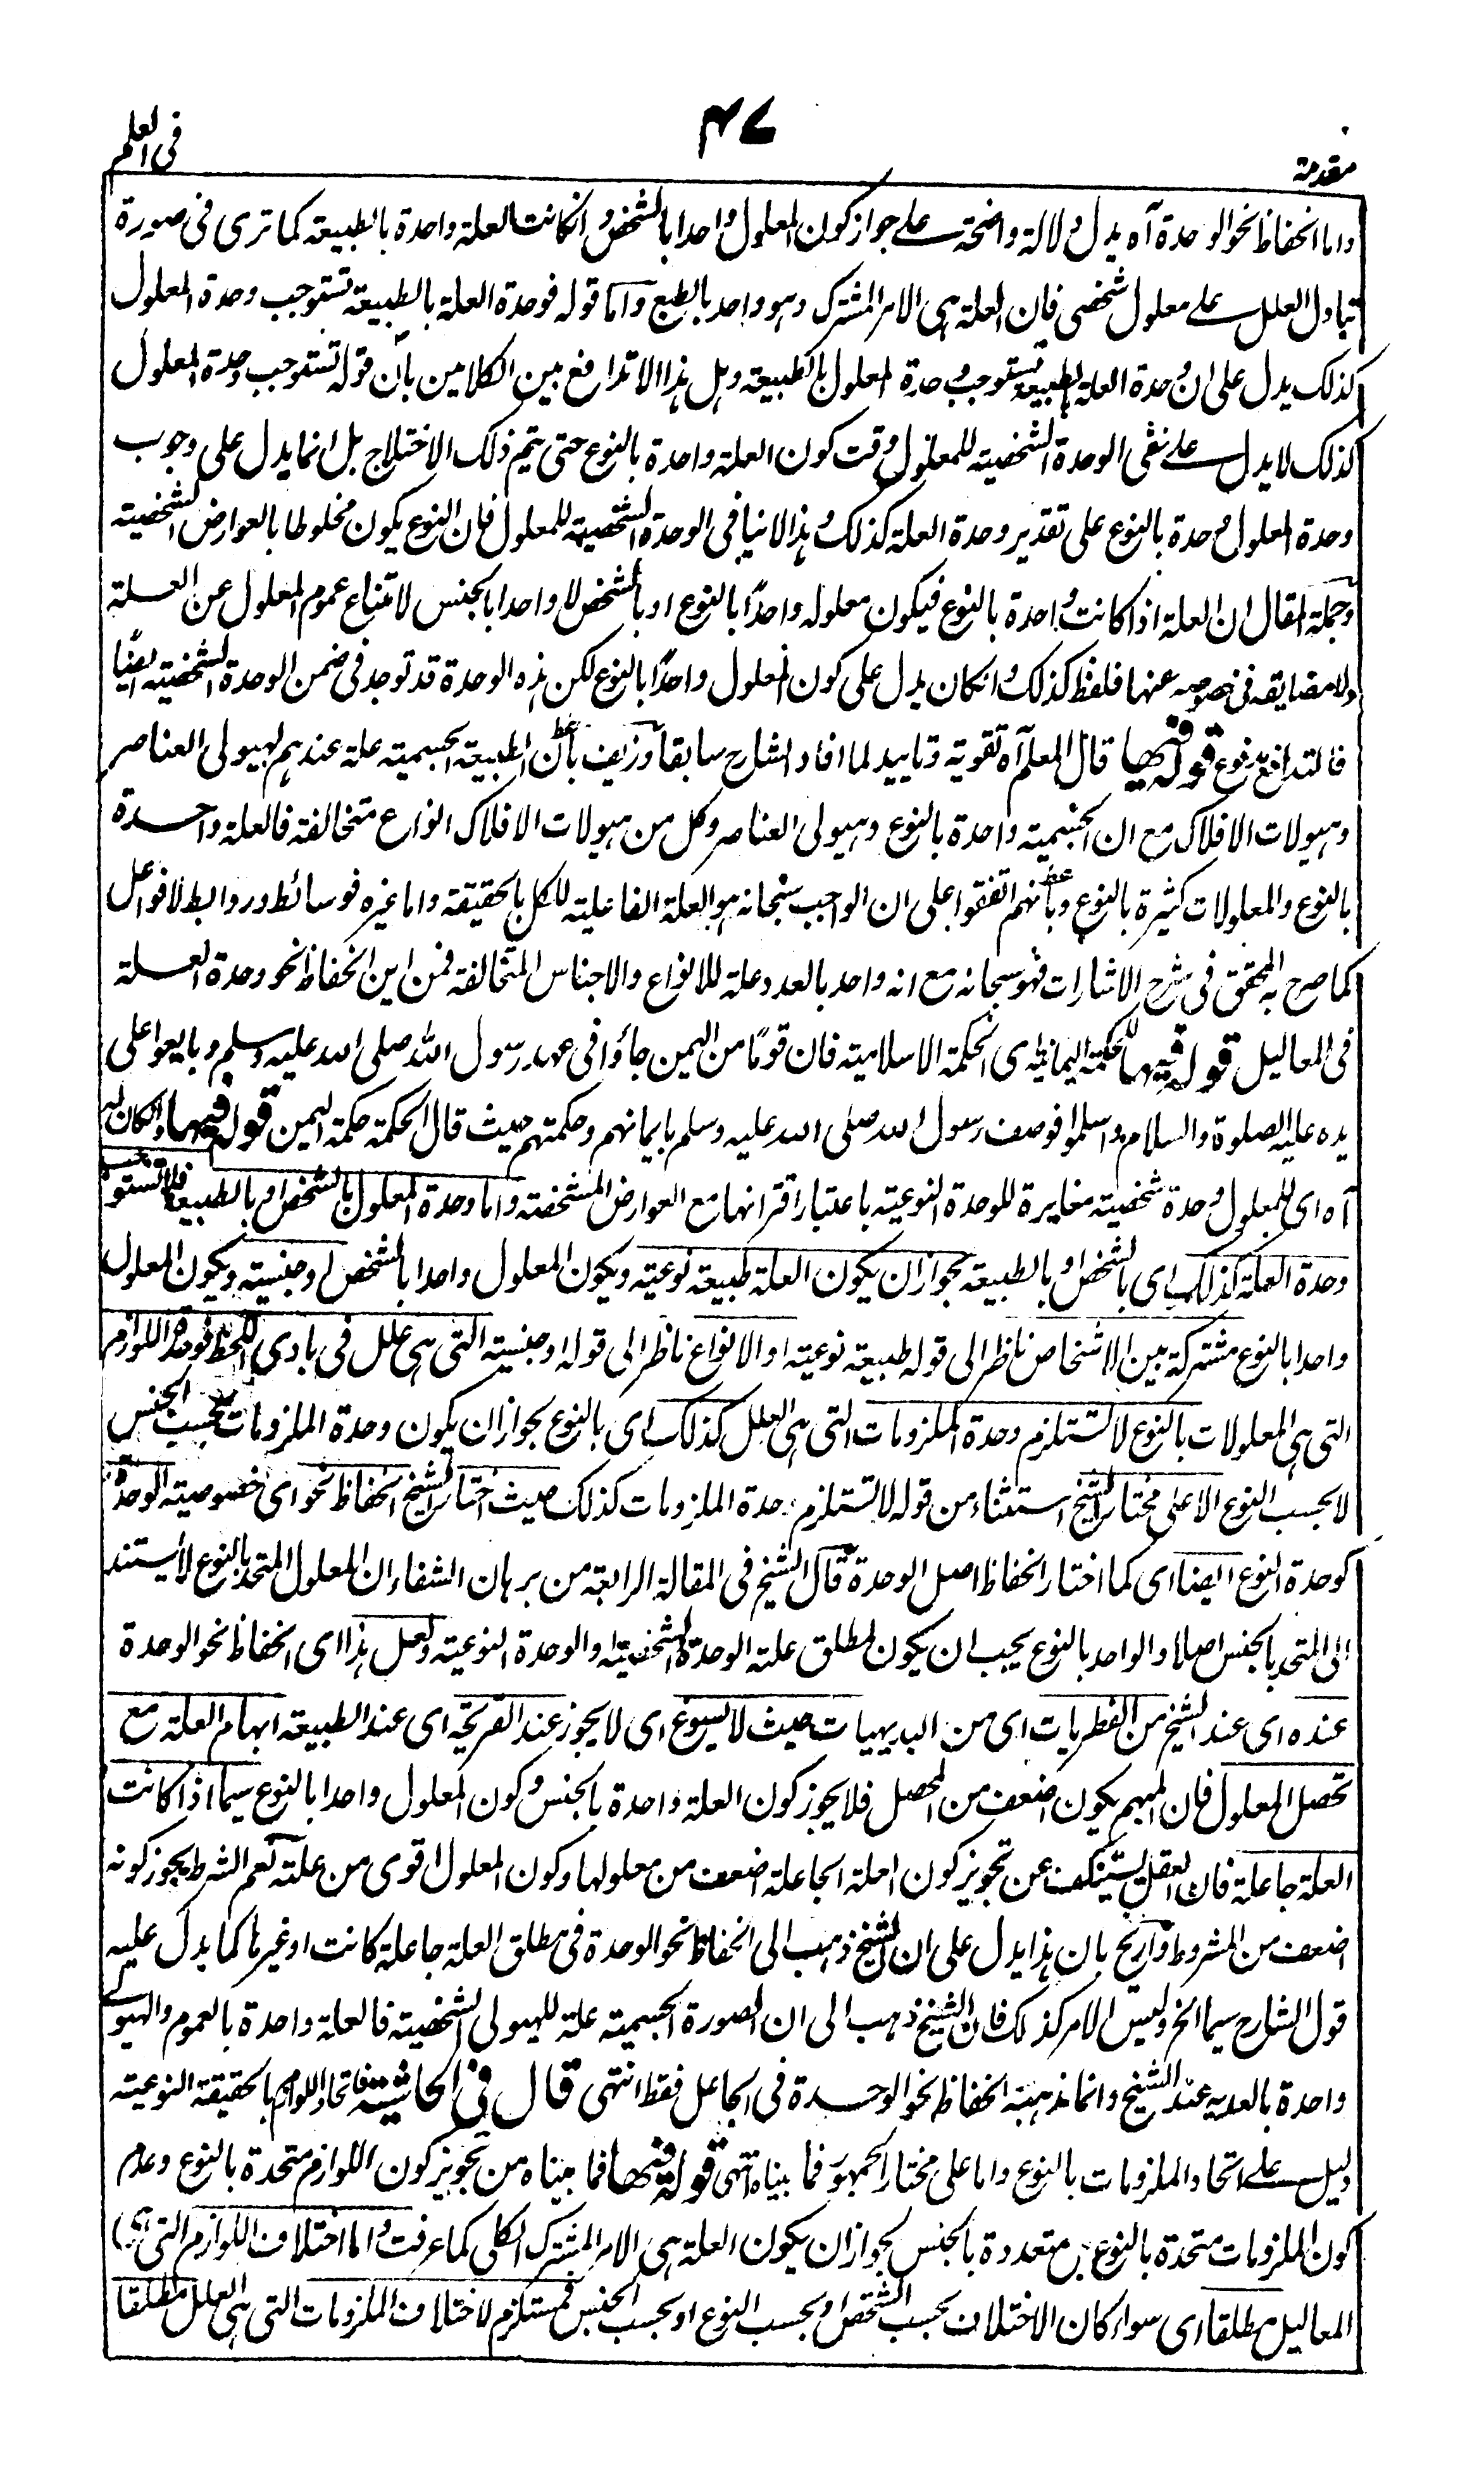 مقدمة
٤٧
فى العلم
واما انحفاظ نحو الوحدة آه يدل دلالة واضحة على جواز كون المعلول واحدا بالشخص وانكانت العلة واحدة بالطبيعة كما ترى فى صورة
تبادل العلل على معلول شخصى فان العلة هى الامر المشترك وهو واحد بالطبع واما قوله فوحدة العلة بالطبيعة تستوجب وحدة المعلول
كذلك يدل على ان وحدة العلة بالطبيعة تستوجب وحدة المعلول بالطبيعة وهل هذا الا تدافع بين الكلامين بأن قوله تستوجب وحدة المعلول
كذلك لا يدل على نفى الوحدة الشخصية للمعلول وقت كون العلة واحدة بالنوع حتى يتم ذلك الاختلاج بل انما يدل على وجوب
وحدة المعلول وحدة بالنوع على تقدير وحدة العلة كذلك وهذا لا ينافى الوحدة الشخصية للمعلول فان النوع يكون مخلوطا بالعوارض الشخصية
وجملة المقال ان العلة اذا كانت واحدة بالنوع فيكون معلوله واحدًا بالنوع او بالشخص لا واحدا بالجنس لامتناع عموم المعلول عن العلة
ولا مضايقه فى خصوصه عنها فلفظ كذلك وانكان يدل على كون المعلول واحدًا بالنوع لكن هذه الوحدة قد توجد فى ضمن الوحدة الشخصية ايضًا
فالتدافع مدفوع قوله فيها قال المعلم آه تقوية وتاييد لما افاد الشارح سابقا وزيف بأن الطبيعة الجسمية علة عندهم لهيولى العناصر
وهيولات الافلاك مع ان الجسمية واحدة بالنوع وهيولى العناصر وكل من هيولات الافلاك انواع متخالفة فالعلة واحدة
بالنوع والمعلولات كثيرة بالنوع وبأنهم اتفقوا على ان الواجب سبحانه هو العلة الفاعلية للكل بالحقيقة واما غيره فوسائط وروابط لا فواعل
كما صرح به المحقق فى شرح الاشارات فهو سبحانه مع انه واحد بالعدد علة للانواع والاجناس المتخالفة فمن اين انحفاظ نحو وحدة العلة
فى المعاليل قوله فيها للحكمة اليمانية اى الحكمة الاسلامية فان قومًا من اليمن جاؤا فى عهد رسول الله صلى الله عليه وسلم وبايعوا على
يده عليه الصلوة والسلام واسلموا فوصف رسول الله صلى الله عليه وسلم بايمانهم وحكمتهم حيث قال الحكمة حكمة اليمن قوله فيها وانكان له
آه اى للمعلول وحدة شخصية مغايرة للوحدة النوعية باعتبار اقترانها مع العوارض المشخصة واما وحدة المعلول بالشخص او بالطبيعة فلا تستوجب
وحدة العلة كذلك اى بالشخص او بالطبيعة لجواز ان يكون العلة طبيعة نوعية ويكون المعلول واحدا بالشخص او جنسية ويكون المعلول
واحدا بالنوع مشتركة بين الاشخاص ناظر الى قوله طبيعة نوعية او الانواع ناظر الى قوله او جنسية التى هى علل فى بادى اللحظ فوحدة اللوازم
التى هى المعلولات بالنوع لا تستلزم وحدة الملزومات التى هى العلل كذلك اى بالنوع لجواز ان يكون وحدة الملزومات بحسب الجنس
لا بحسب النوع الا على مختار الشيخ استثناء من قوله لا تستلزم وحدة الملزومات كذلك حيث اختار الشيخ انحفاظ نحو اى خصوصية الوحدة
كوحدة النوع ايضا اى كما اختار انحفاظ اصل الوحدة قال الشيخ فى المقالة الرابعة من برهان الشفاء ان المعلول المتحد بالنوع لا يستند
الى المتحد بالجنس اصلا والواحد بالنوع يجب ان يكون لمطلق علته الوحدة الشخصية او الوحدة النوعية ولعل هذا اى انحفاظ نحو الوحدة
عنده اى عند الشيخ من الفطريات اى من البديهيات حيث لا يسوغ اى لا يجوز عند القريحة اى عند الطبيعة ابهام العلة مع
تحصل المعلول فان المبهم يكون اضعف من المحصل فلا يجوز كون العلة واحدة بالجنس وكون المعلول واحدا بالنوع سيما اذا كانت
العلة جاعلة فان العقل يستنكف عن تجويز كون العلة الجاعلة اضعف من معلولها وكون المعلول اقوى من علته نعم الشرط يجوز كونه
اضعف من المشروط وازيح بان هذا يدل على ان الشيخ ذهب الى انحفاظ نحو الوحدة فى مطلق العلة جاعلة كانت او غيرها كما يدل عليه
قول الشارح سيما الخ وليس الامر كذلك فان الشيخ ذهب الى ان الصورة الجسمية علة للهيولى الشخصية فالعلة واحدة بالعموم والهيولى
واحدة بالعدد عند الشيخ وانما مذهبه انحفاظ نحو الوحدة فى الجاعل فقط انتهى قال فى الحاشية فاتحاد اللوازم بالحقيقة النوعية
دليل على اتحاد الملزومات بالنوع واما على مختار الجمهور فما بيناه انتهى قوله فيها فما بيناه من تجويز كون اللوازم متحدة بالنوع وعدم
كون الملزومات متحدة بالنوع بل متعددة بالجنس لجواز ان يكون العلة هى الامر المشترك الكلى كما عرفت واما اختلاف اللوازم التى هى
المعاليل مطلقا اى سواء كان الاختلاف بحسب الشخص او بحسب النوع او بحسب الجنس فمستلزم لاختلاف الملزومات التى هى العلل مطلقا